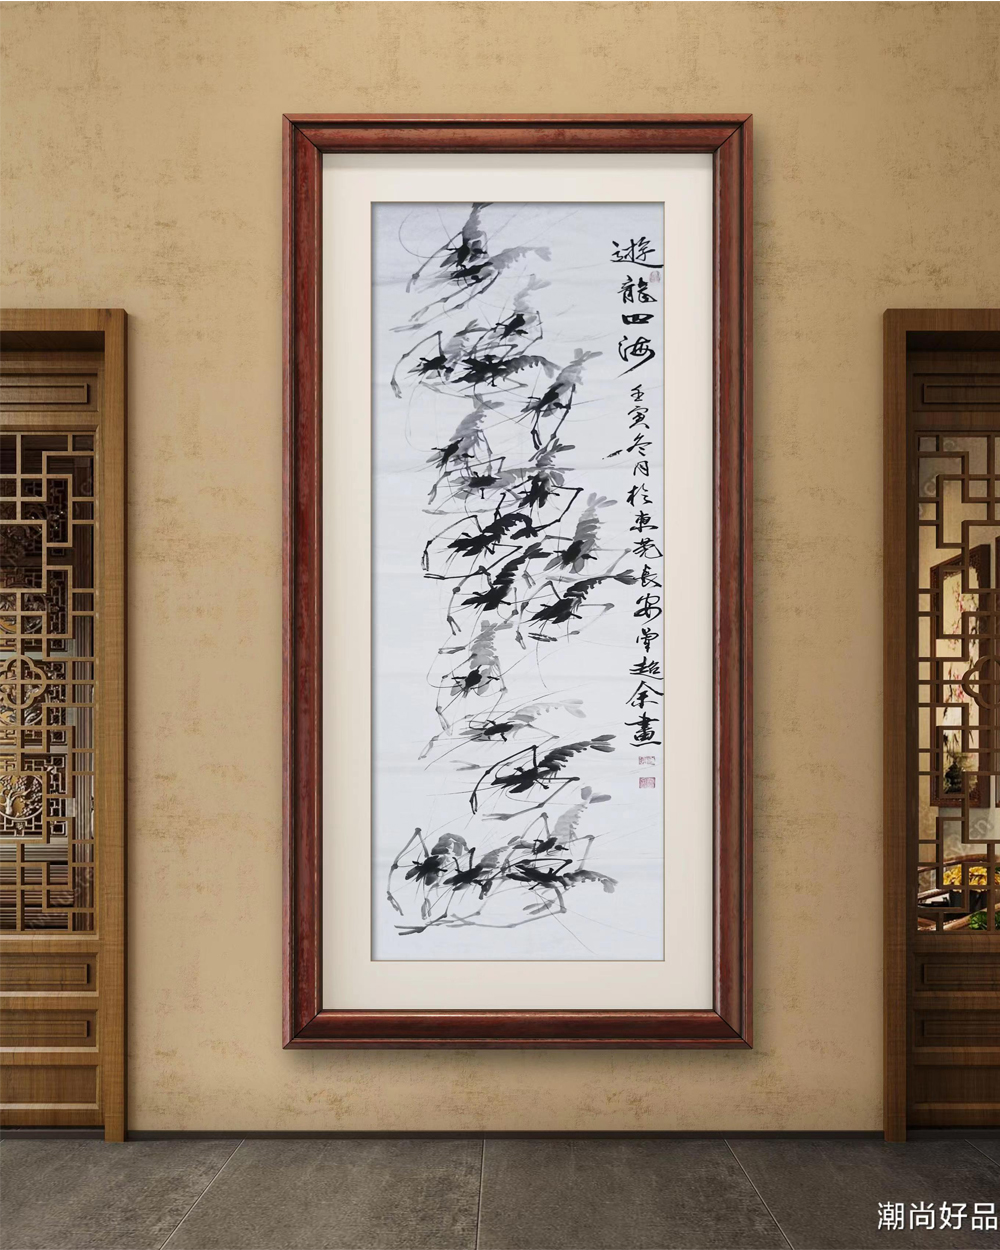 遊龍四海
壬寅冬月於東莞長安曾超余畫
潮尚好品